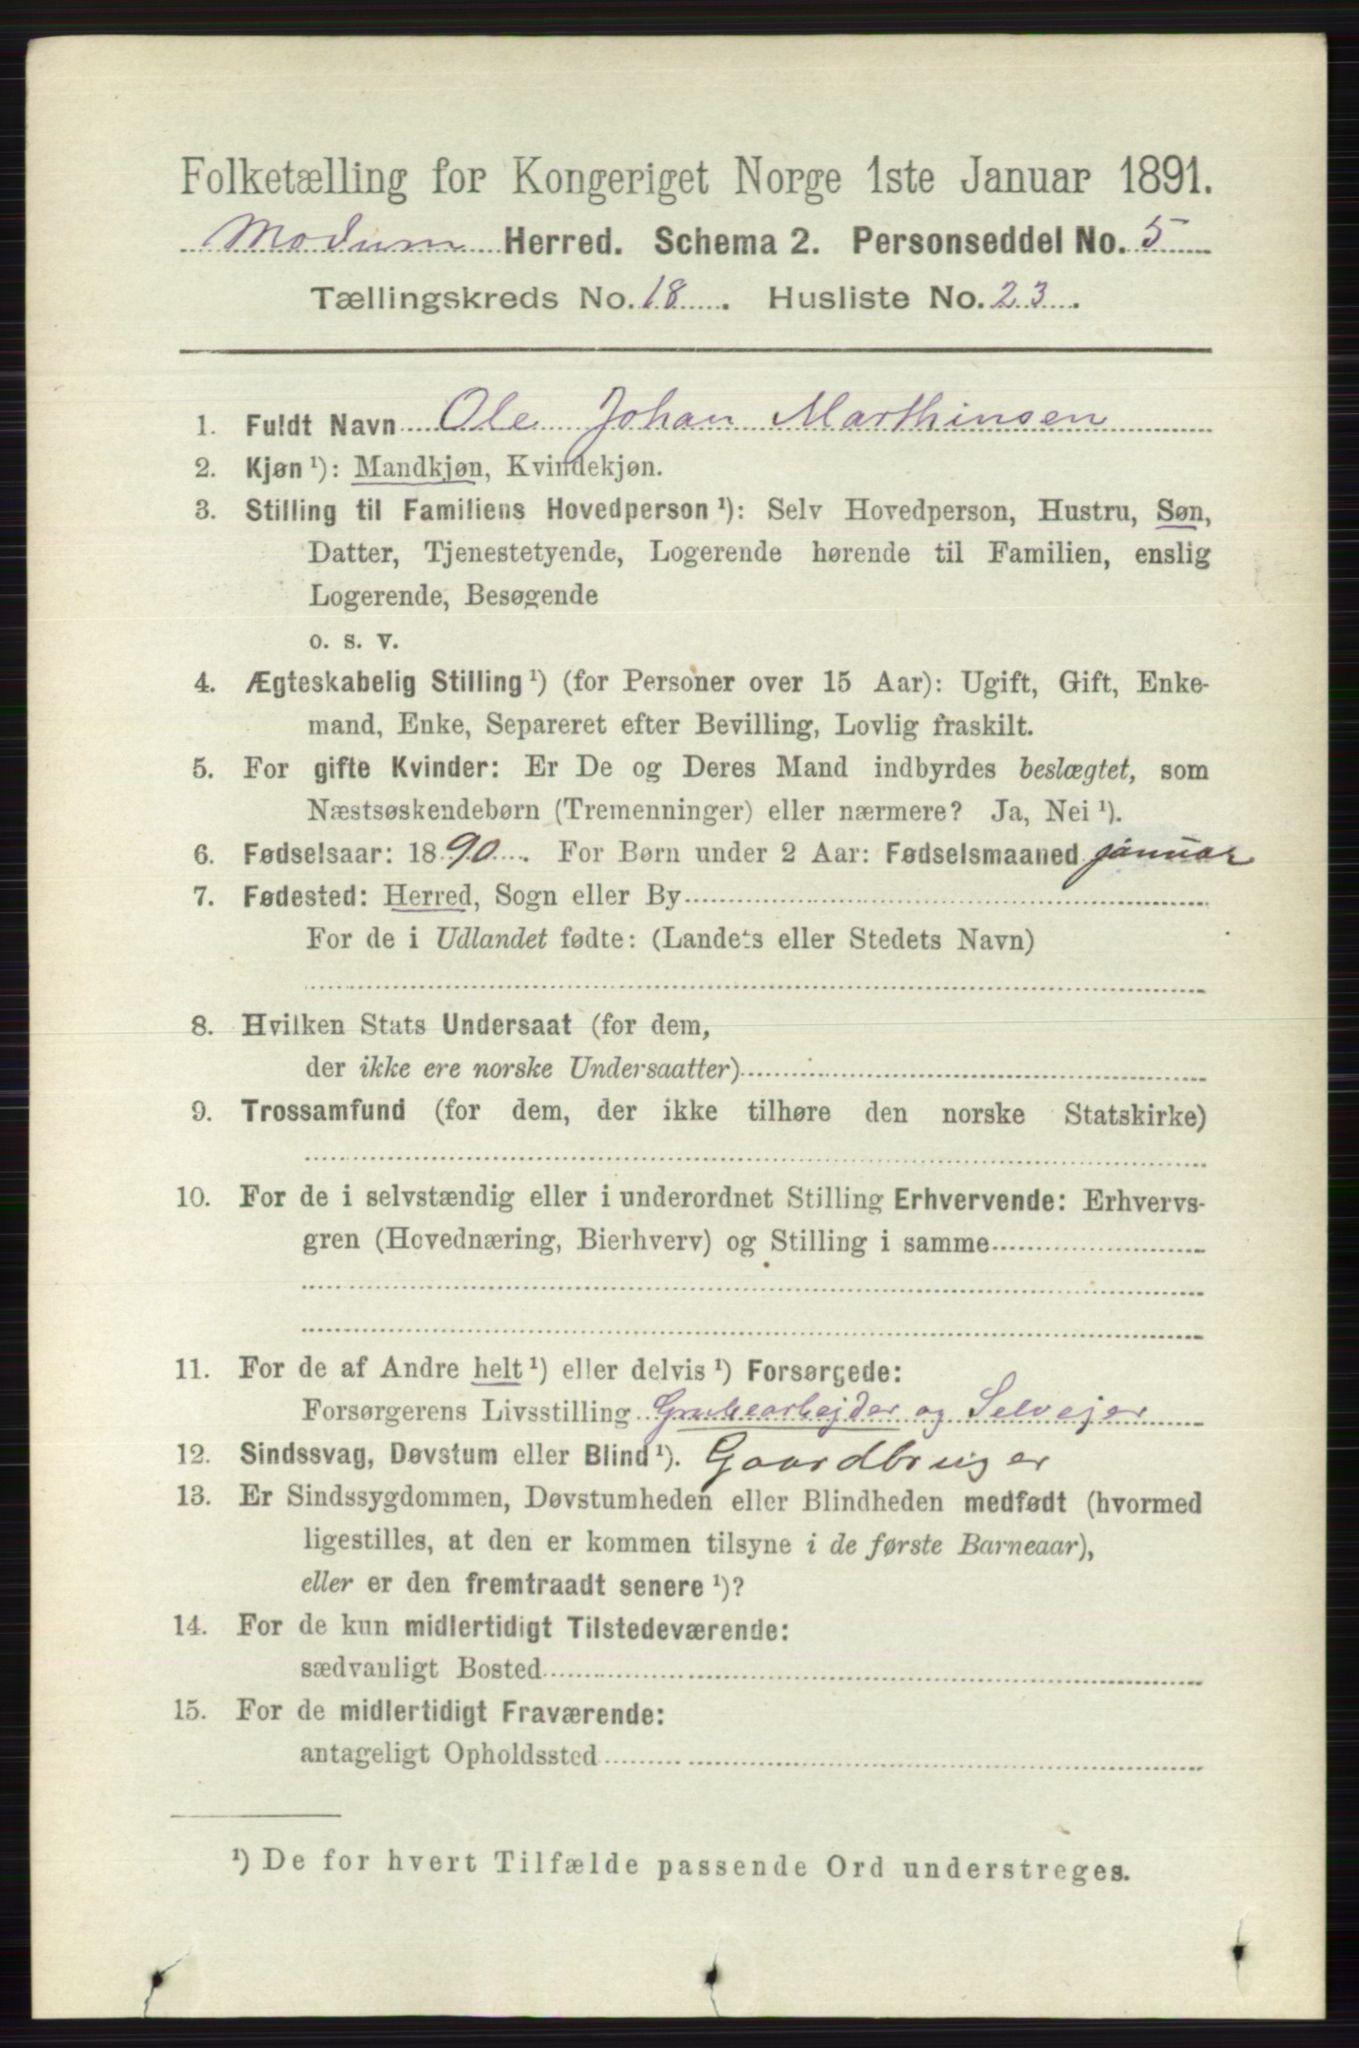 Folketælling for Kongeriget Norge 1ste Januar 1891.
Modum Herred. Schema 2. Personseddel No. 5
Tællingskreds No. 18. Husliste No. 23.
1. Fuldt Navn Ole Johan Marthinsen
2. Kjøn ¹): Mandkjøn, Kvindekjøn.
3. Stilling til Familiens Hovedperson ¹): Selv Hovedperson, Hustru, Søn,
Datter, Tjenestetyende, Logerende hørende til Familien, enslig
Logerende, Besøgende
o. s. v.
4. Ægteskabelig Stilling ¹) (for Personer over 15 Aar): Ugift, Gift, Enke-
mand, Enke, Separeret efter Bevilling, Lovlig fraskilt.
5. For gifte Kvinder: Er De og Deres Mand indbyrdes beslægtet, som
Næstsøskendebørn (Tremenninger) eller nærmere? Ja, Nei ¹).
6. Fødselsaar: 1890. For Børn under 2 Aar: Fødselsmaaned januar
7. Fødested: Herred, Sogn eller By
For de i Udlandet fødte: (Landets eller Stedets Navn)
8. Hvilken Stats Undersaat (for dem,
der ikke ere norske Undersaatter)
9. Trossamfund (for dem, der ikke tilhøre den norske Statskirke)
10. For de i selvstændig eller i underordnet Stilling Erhvervende: Erhvervs-
gren (Hovednæring, Bierhverv) og Stilling i samme
11. For de af Andre helt ¹) eller delvis ¹) Forsørgede:
Forsørgerens Livsstilling Grubearbejder og Selvejer
12. Sindssvag, Døvstum eller Blind ¹). Gaardbruger
13. Er Sindssygdommen, Døvstumheden eller Blindheden medfødt (hvormed
ligestilles, at den er kommen tilsyne i de første Barneaar),
eller er den fremtraadt senere ¹)?
14. For de kun midlertidigt Tilstedeværende:
sædvanligt Bosted
15. For de midlertidigt Fraværende:
antageligt Opholdssted
¹) De for hvert Tilfælde passende Ord understreges.